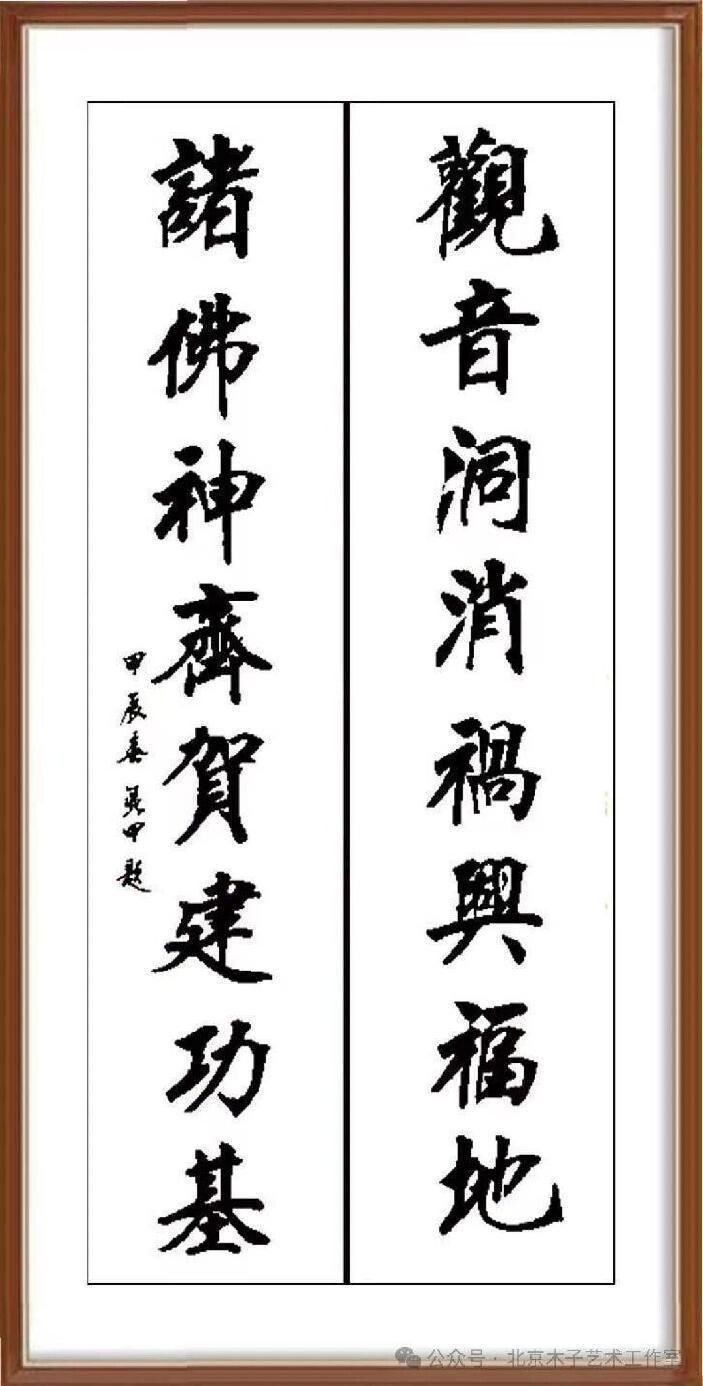 觀音洞消禍興福地
諸佛神齊賀建功基
甲辰春 吴甲題
公众号·北京木子艺术工作室